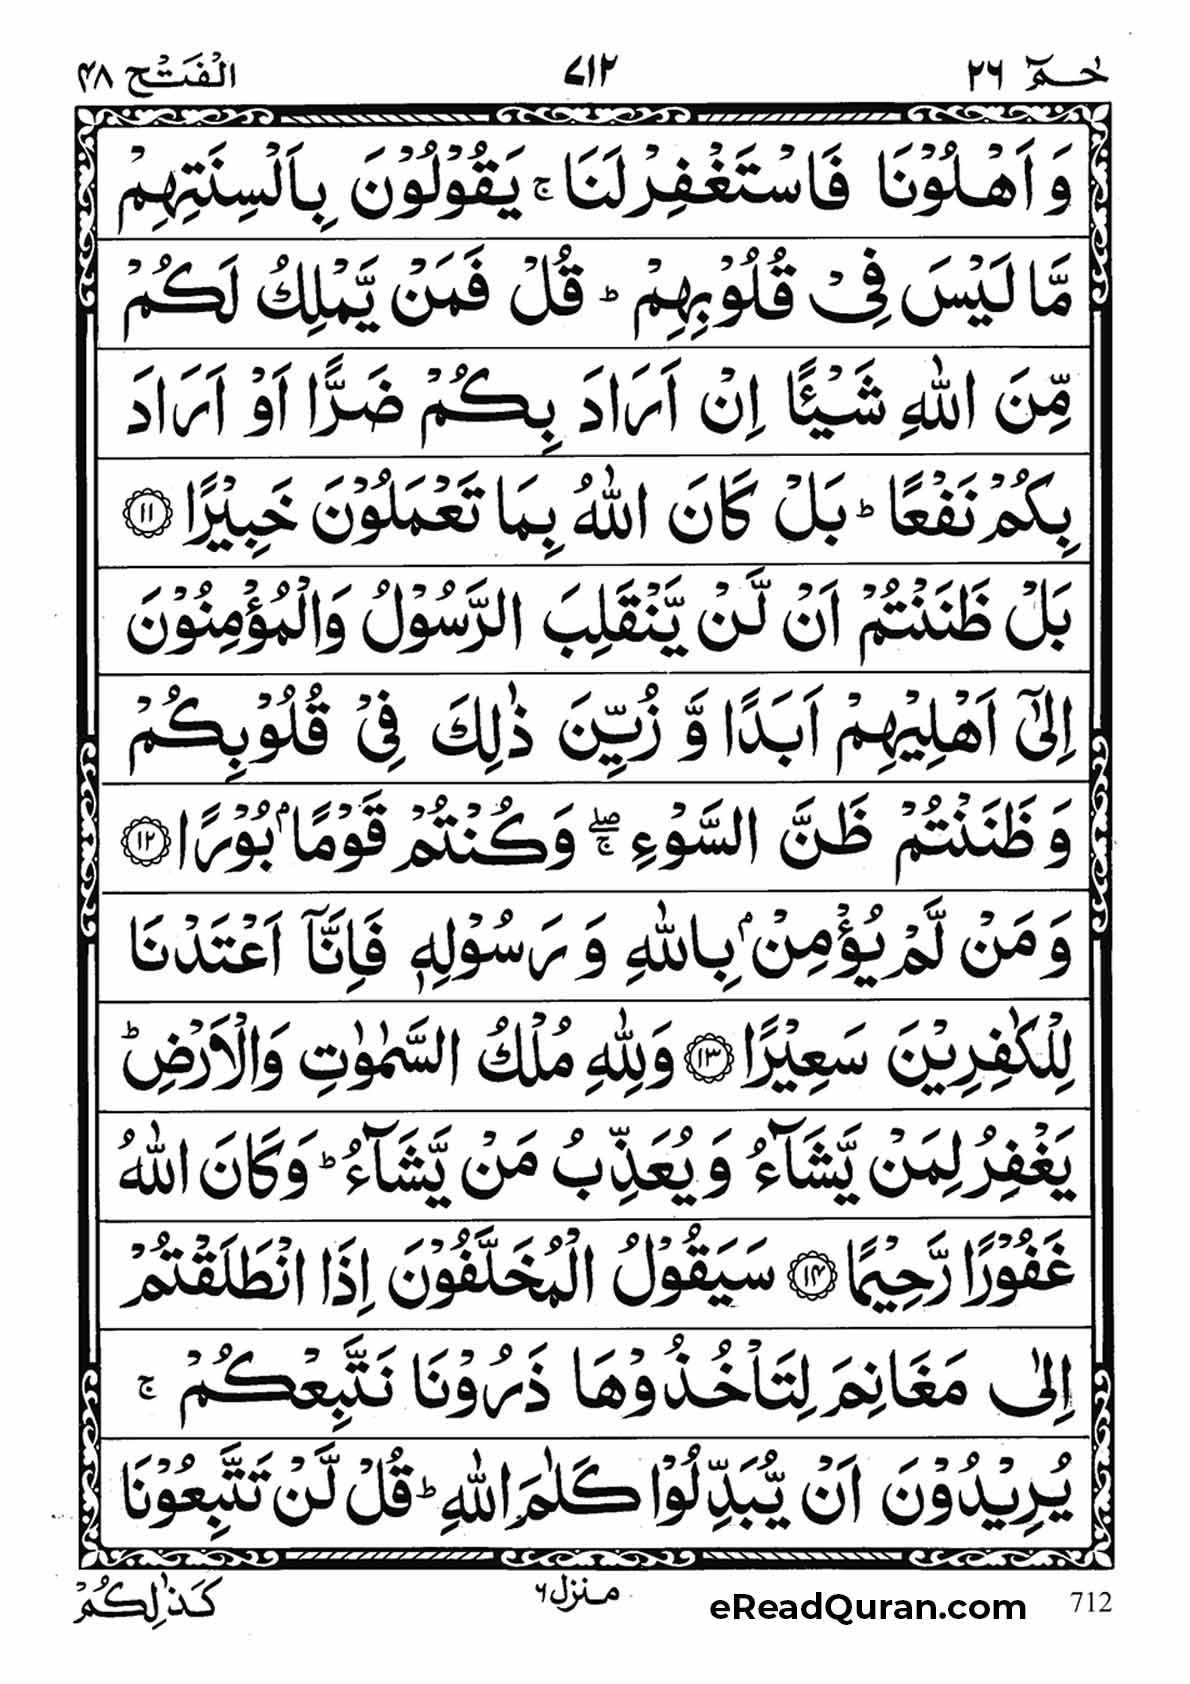 حٰمٓ ٢٦ ٧١٢ الْفَتْح ٤٨
وَ اَهْلُوْنَا فَاسْتَغْفِرْ لَنَا ۚ يَقُوْلُوْنَ بِاَلْسِنَتِهِمْ
مَّا لَيْسَ فِيْ قُلُوْبِهِمْ ؕ قُلْ فَمَنْ يَّمْلِكُ لَكُمْ
مِّنَ اللّٰهِ شَيْـًٔا اِنْ اَرَادَ بِكُمْ ضَرًّا اَوْ اَرَادَ
بِكُمْ نَفْعًا ؕ بَلْ كَانَ اللّٰهُ بِمَا تَعْمَلُوْنَ خَبِيْرًا ١١
بَلْ ظَنَنْتُمْ اَنْ لَّنْ يَّنْقَلِبَ الرَّسُوْلُ وَالْمُؤْمِنُوْنَ
اِلٰٓى اَهْلِيْهِمْ اَبَدًا وَّ زُيِّنَ ذٰلِكَ فِيْ قُلُوْبِكُمْ
وَ ظَنَنْتُمْ ظَنَّ السَّوْءِ ۖۚ وَكُنْتُمْ قَوْمًاۢ بُوْرًا ١٢
وَ مَنْ لَّمْ يُؤْمِنْۢ بِاللّٰهِ وَ رَسُوْلِهٖ فَاِنَّاۤ اَعْتَدْنَا
لِلْكٰفِرِيْنَ سَعِيْرًا ١٣ وَلِلّٰهِ مُلْكُ السَّمٰوٰتِ وَالْاَرْضِ ؕ
يَغْفِرُ لِمَنْ يَّشَآءُ وَ يُعَذِّبُ مَنْ يَّشَآءُ ؕ وَكَانَ اللّٰهُ
غَفُوْرًا رَّحِيْمًا ١٤ سَيَقُوْلُ الْمُخَلَّفُوْنَ اِذَا انْطَلَقْتُمْ
اِلٰى مَغَانِمَ لِتَاْخُذُوْهَا ذَرُوْنَا نَتَّبِعْكُمْ ۚ
يُرِيْدُوْنَ اَنْ يُّبَدِّلُوْا كَلٰمَ اللّٰهِ ؕ قُلْ لَّنْ تَتَّبِعُوْنَا
كَذٰلِكُمْ منزل ٦ eReadQuran.com 712